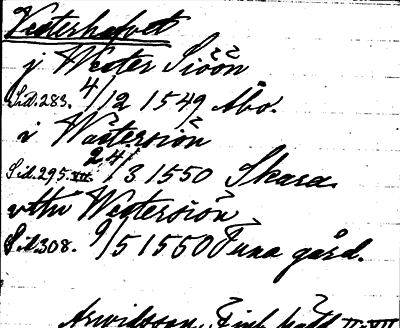 Vesterhafvet
j Wester Siöön
Sid. 283. 4/12 1549 Åbo.
i Wästersiön
Sid. 295. VII. 24/3 1550 Skara.
vthi Westersiön
Sid. 308. 9/5 1550 Tuna gård.
Arwidsson, Finl. häfd. II-VII